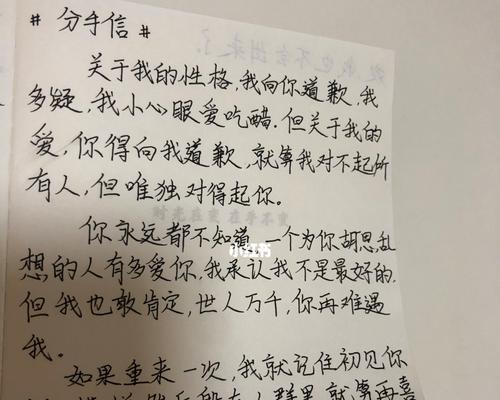 # 分手信 #
关于我的性格,我向你道歉,我
多疑,我小心眼爱吃醋.但关于我的
爱,你得向我道歉,就算我对不起所
有人,但唯独对得起你。
时光在变 在乎不变
你永远都不知道 一个为你胡思乱
小红书
想的人有多爱你.我承认我不是最好的.
但我也敢肯定,世人万千,你再难遇
我。
如果重来一次,我就记住初见你
在人群里,就算再喜